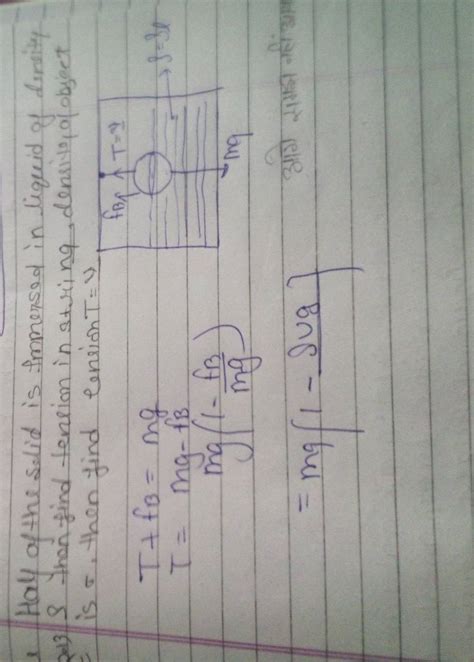 Half of the solid is immersed in liquid of density
Que3 ρ than find tension in string density of object
is σ. then find tension T = ?
T = ?
fB↑
ρ = ρl
mg
T + fB = mg
T = mg - fB
mg(1 - fB/mg)
= mg[1 - ρvg
आगे समझ नहीं आया